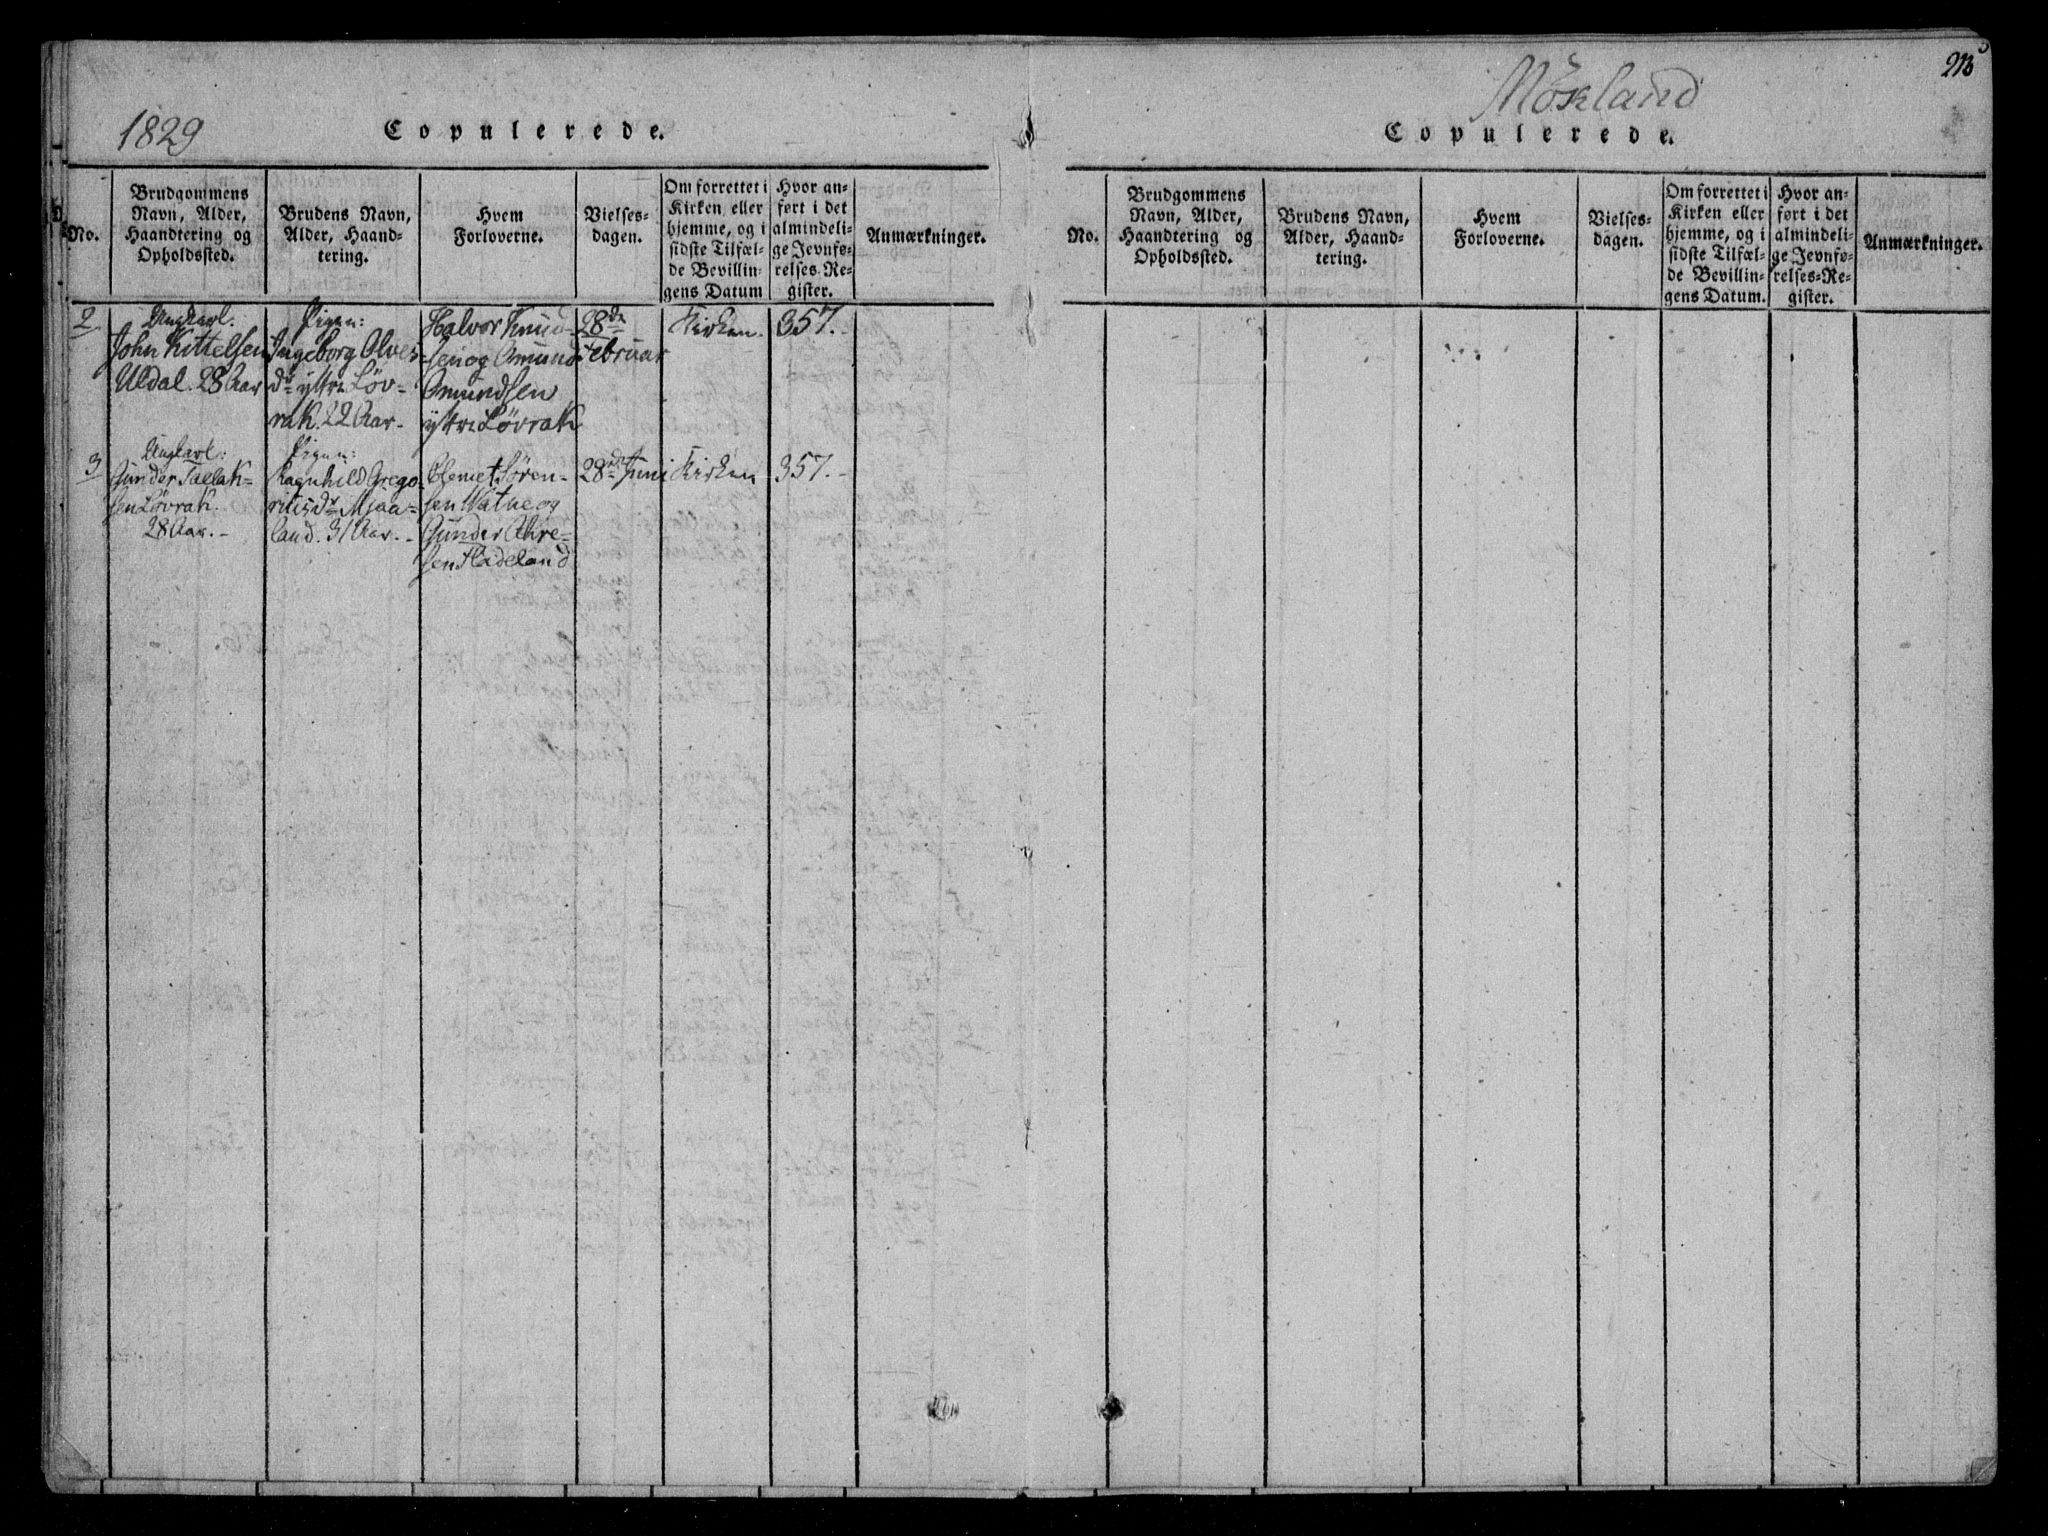 1829
Copulerede.
No.
Brudgommens
Navn, Alder,
Haandtering og
Opholdssted.
Brudens Navn,
Alder, Haand-
tering.
Hvem
Forloverne.
Vielses-
dagen.
Om forrettet i
Kirken eller
hjemme, og i
sidste Tilfæl-
de Bevillin-
gens Datum
Hvor an-
ført i det
almindeli-
ge Jevnfø-
relses-Re-
gister.
Anmærkninger.
2
Ungkarl:
John Kittelsen
Uldal. 28 Aar
Pigen:
Ingeborg Olves-
dr yttre Løv-
rak. 22 Aar.
Halvor Knud-
sen og Omund
Omundsen
yttre Løvrak
28de
Februar
Kirken.
357.
3
Ungkarl:
Gunder Tallak-
sen Løvrak.
28 Aar.
Pigen:
Ragnhild Grego-
riusdr Mjaa-
land. 31 Aar.
Clemet Søren-
sen Watne og
Gunder
sen Fladeland
28de Juni
Kirken
357.
Möskland
Copulerede.
No.
Brudgommens
Navn, Alder,
Haandtering og
Opholdssted.
Brudens Navn,
Alder, Haand-
tering.
Hvem
Forloverne.
Vielses-
dagen.
Om forrettet i
Kirken eller
hjemme, og i
sidste Tilfæl-
de Bevillin-
gens Datum.
Hvor an-
ført i det
almindeli-
ge Jevnfø-
relses-Re-
gister.
Anmærkninger.